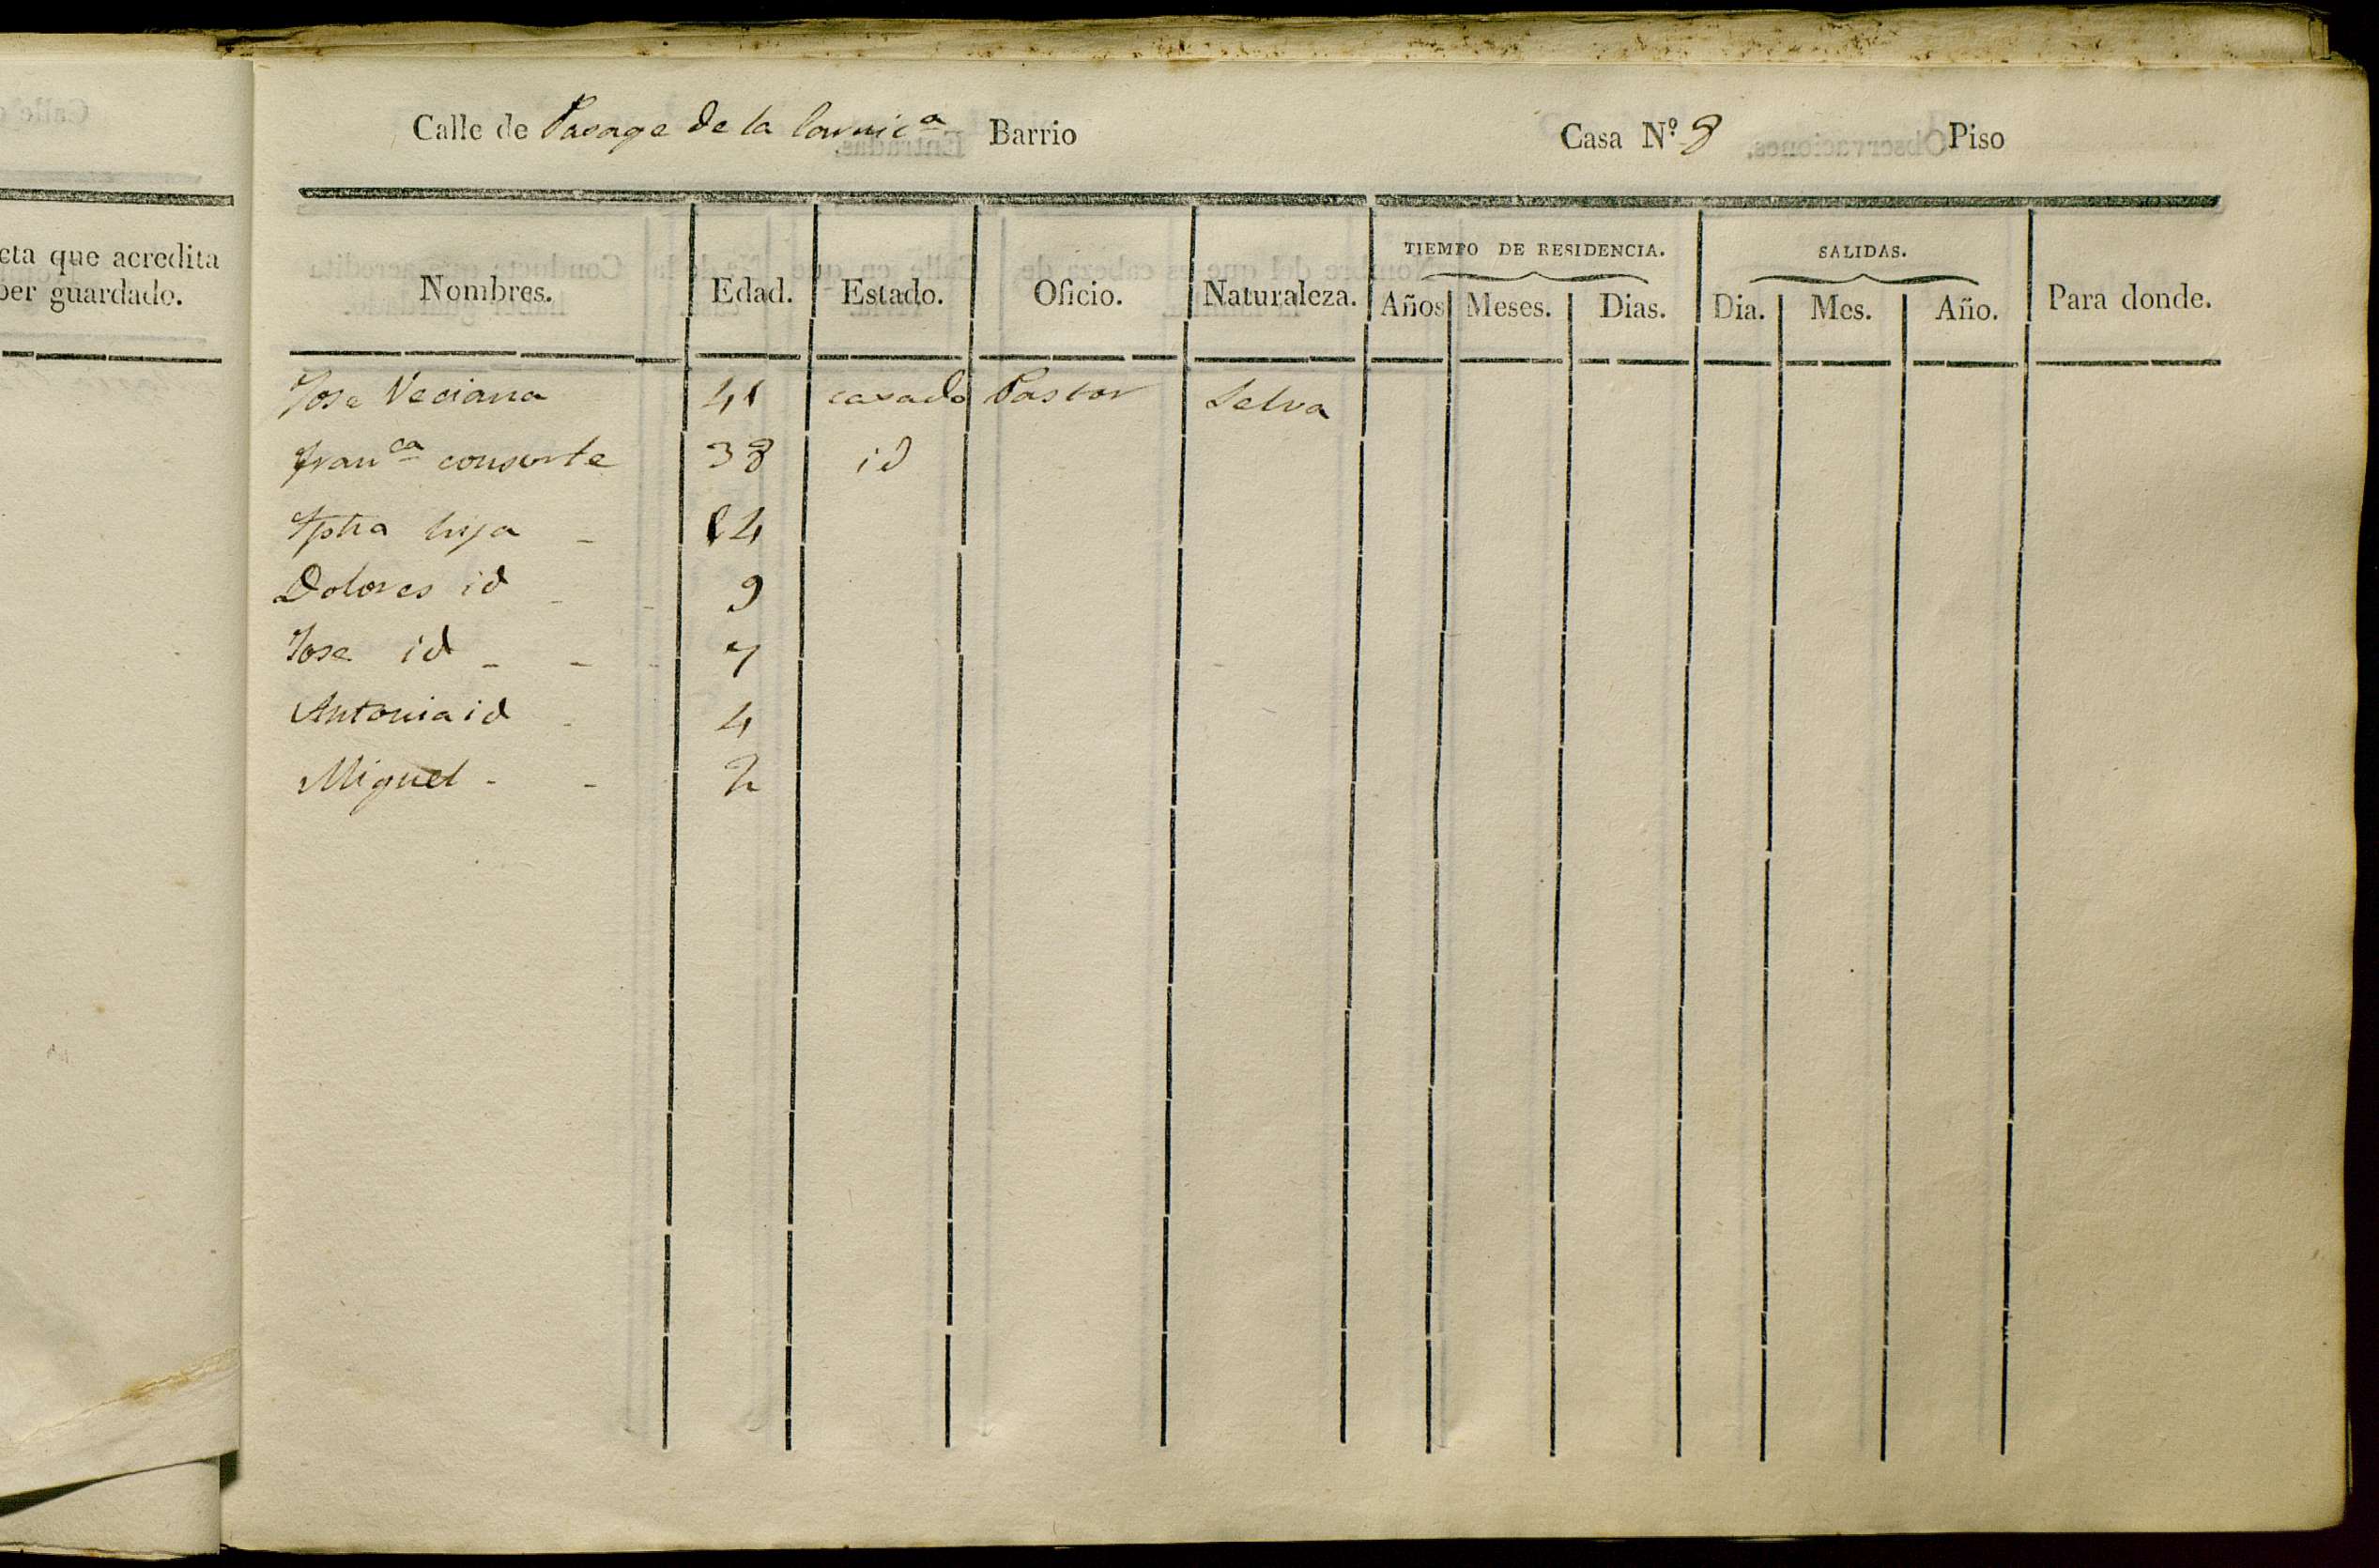 cta que acredita
ber guardado.
Calle de Pasage de la Barrio Casa N.º 8 Piso
TIEMPO DE RESIDENCIA. SALIDAS.
Nombres. Edad. Estado. Oficio. Naturaleza. Años Meses. Dias. Dia. Mes. Año. Para donde.
Jose Veciana 41 casado Pastor Selva
Franca consorte 38 id
hija 14
Dolores id 9
Jose id 7
Antonia id 4
Miguel 2